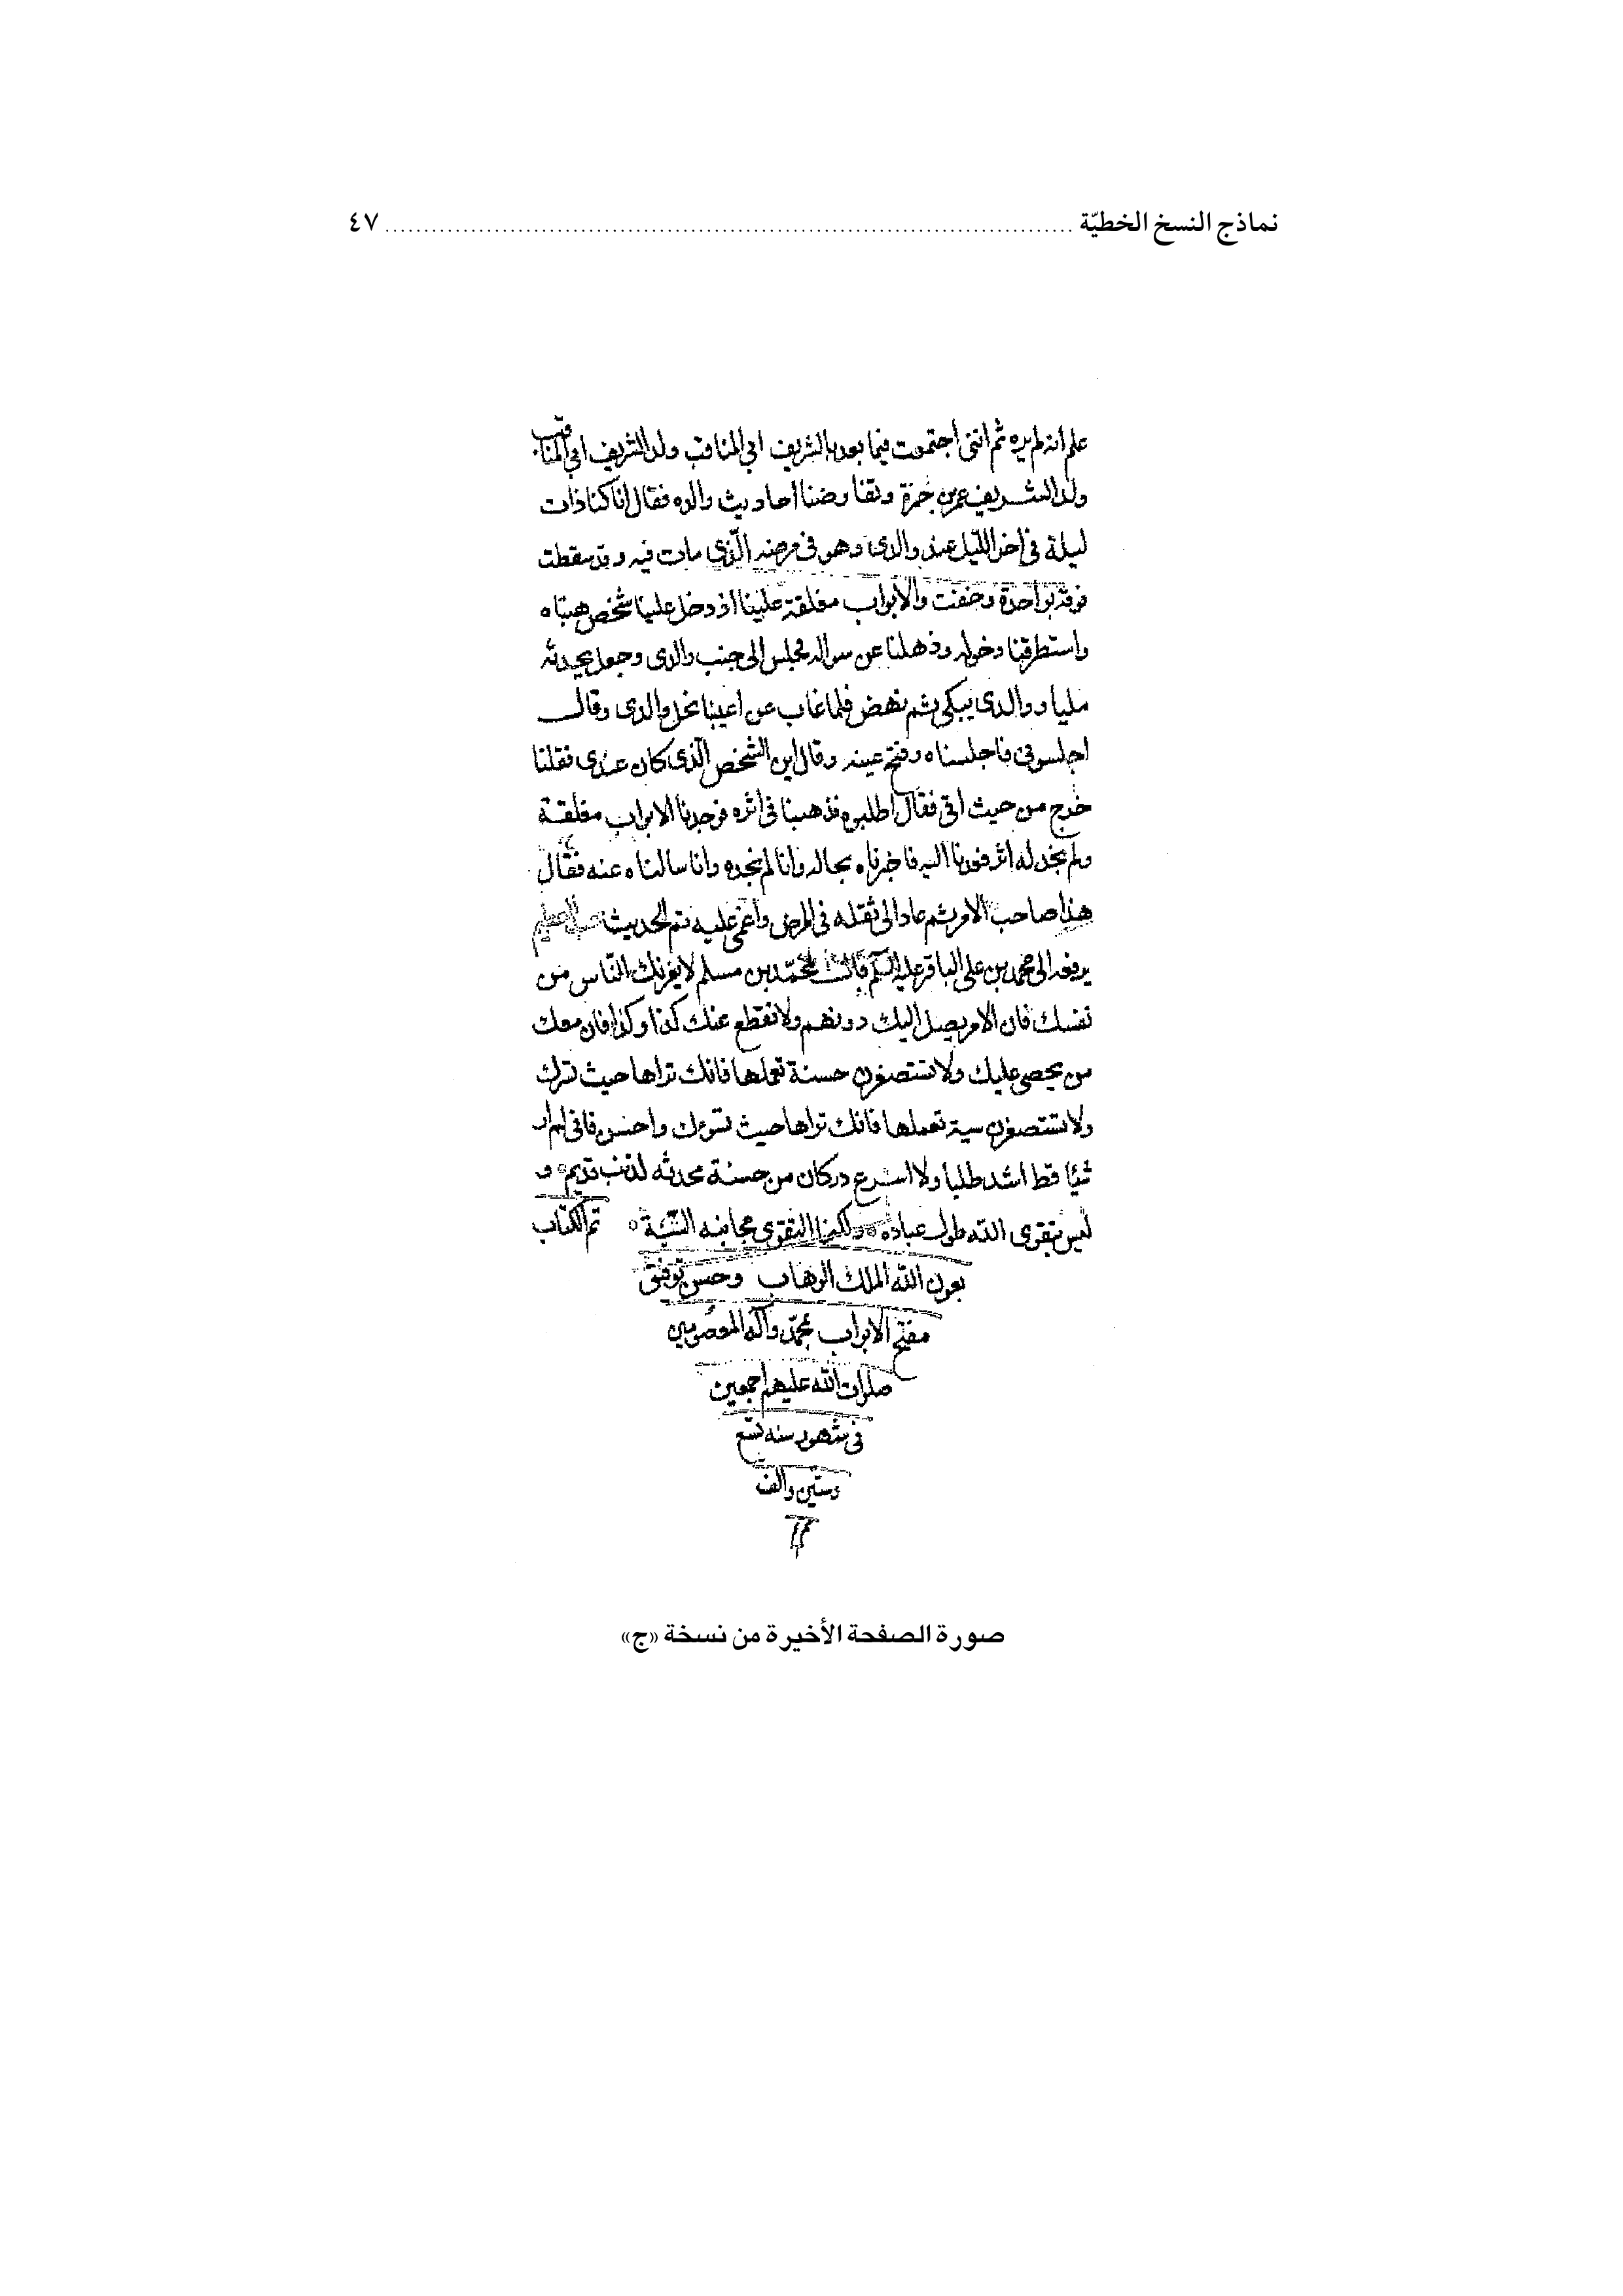 نماذج النسخ الخطيّة ................ ٤٧
علم انه لم يره ثم انني اجتمعت فيما بعد بالشريف ابي المناقب ولد الشريف ابي المناقب
ولد الشريف عمر بن حمزة وتفاوضنا احاديث والده فقال انا كنا ذات
ليلة في اخر الليل عند والدى وهو في مرضه الّذى مات فيه وقد سقطت
واحدة وخفت والابواب مغلقة علينا اذ دخل علينا شخص هبناه
واستطرقنا دخوله وذهلنا عن سواله فجلس الى جنب والدى وجعل يحدثه
مليا ووالدى يبكى ثم نهض فلما غاب عن اعيننا والدى وقال
اجلسونى فاجلسناه وفتح عينه وقال اين الشخص الّذى كان عندى فقلنا
خرج من حيث اتى فقال اطلبوه فذهبنا في اثره فوجدنا الابواب مغلقة
ولم نجد له اثر فعدنا اليه فاخبرناه بحاله وانا لم نجده وانا سالناه عنه فقال
هذا صاحب الامر ثم عاد الى ثقله في المرض واغمى عليه تم الحديث
يرفعه الى محمد بن على الباقر عليه السلم قال لمحمّد بن مسلم لا يغرنك النّاس من
نفسك فان الامر يصل اليك دونهم ولا تقطع عنك كذا وكذا فان معك
من يحصى عليك ولا تستصغرن حسنة تعملها فانك تراها حيث تسرك
ولا تستصغرن سيئة تعملها فانك تراها حيث تسوءك واحسن فانى لم ار
شيئا قط اشد طلبا ولا اسرع دركا من حسنة محدثه لذنب قديم و
ليس تقوى الله طول عباده ولكن التقوى مجانبه تم الكتاب
بعون الله الملك الوهاب وحسن توفيق
مفتح الابواب بمحمّد وآله المعصومين
صلوات الله عليهم اجمعين
في شهور سنه تسع
وستين والف
صورة الصفحة الأخيرة من نسخة «ج»